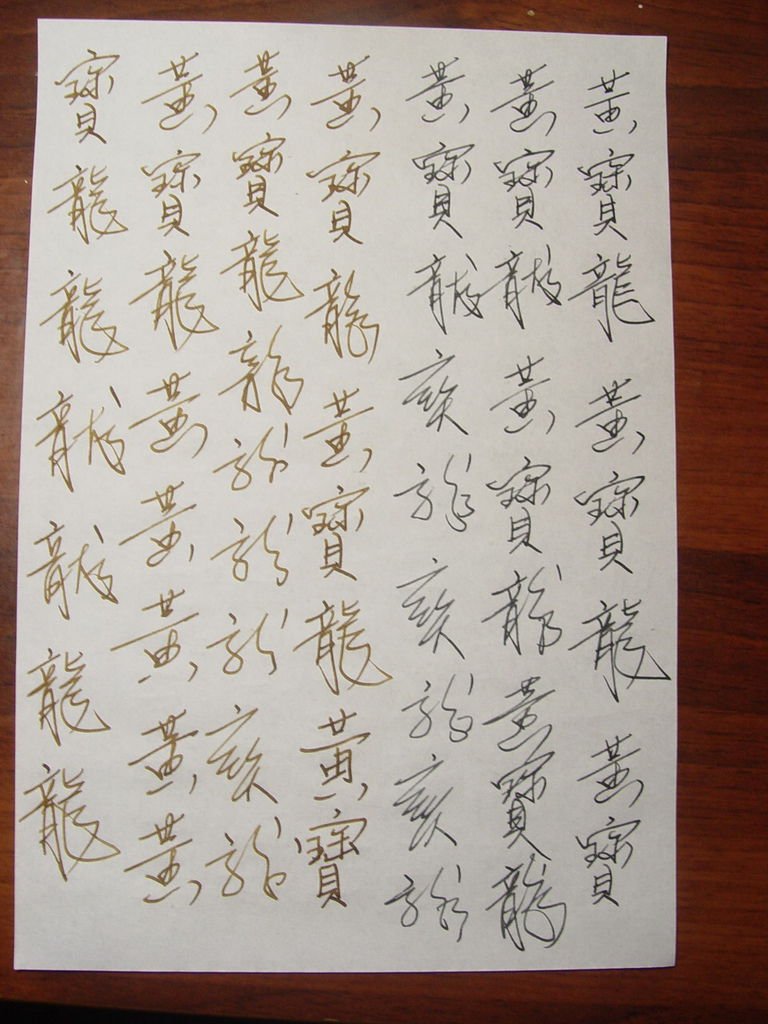 黃寶龍黃寶龍黃寶
黃寶龍黃寶龍黃寶龍
黃寶龍
黃寶龍黃寶龍黃寶
黃寶龍龍
黃寶龍黃黃黃黃黃
寶龍龍龍龍龍龍